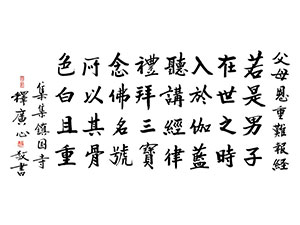 父母恩重難報經
若是男子
在世之時
入於伽藍
聽講經律
禮拜三寶
念佛名號
所以其骨
色白且重
集集鎮因寺
釋廣心敬書